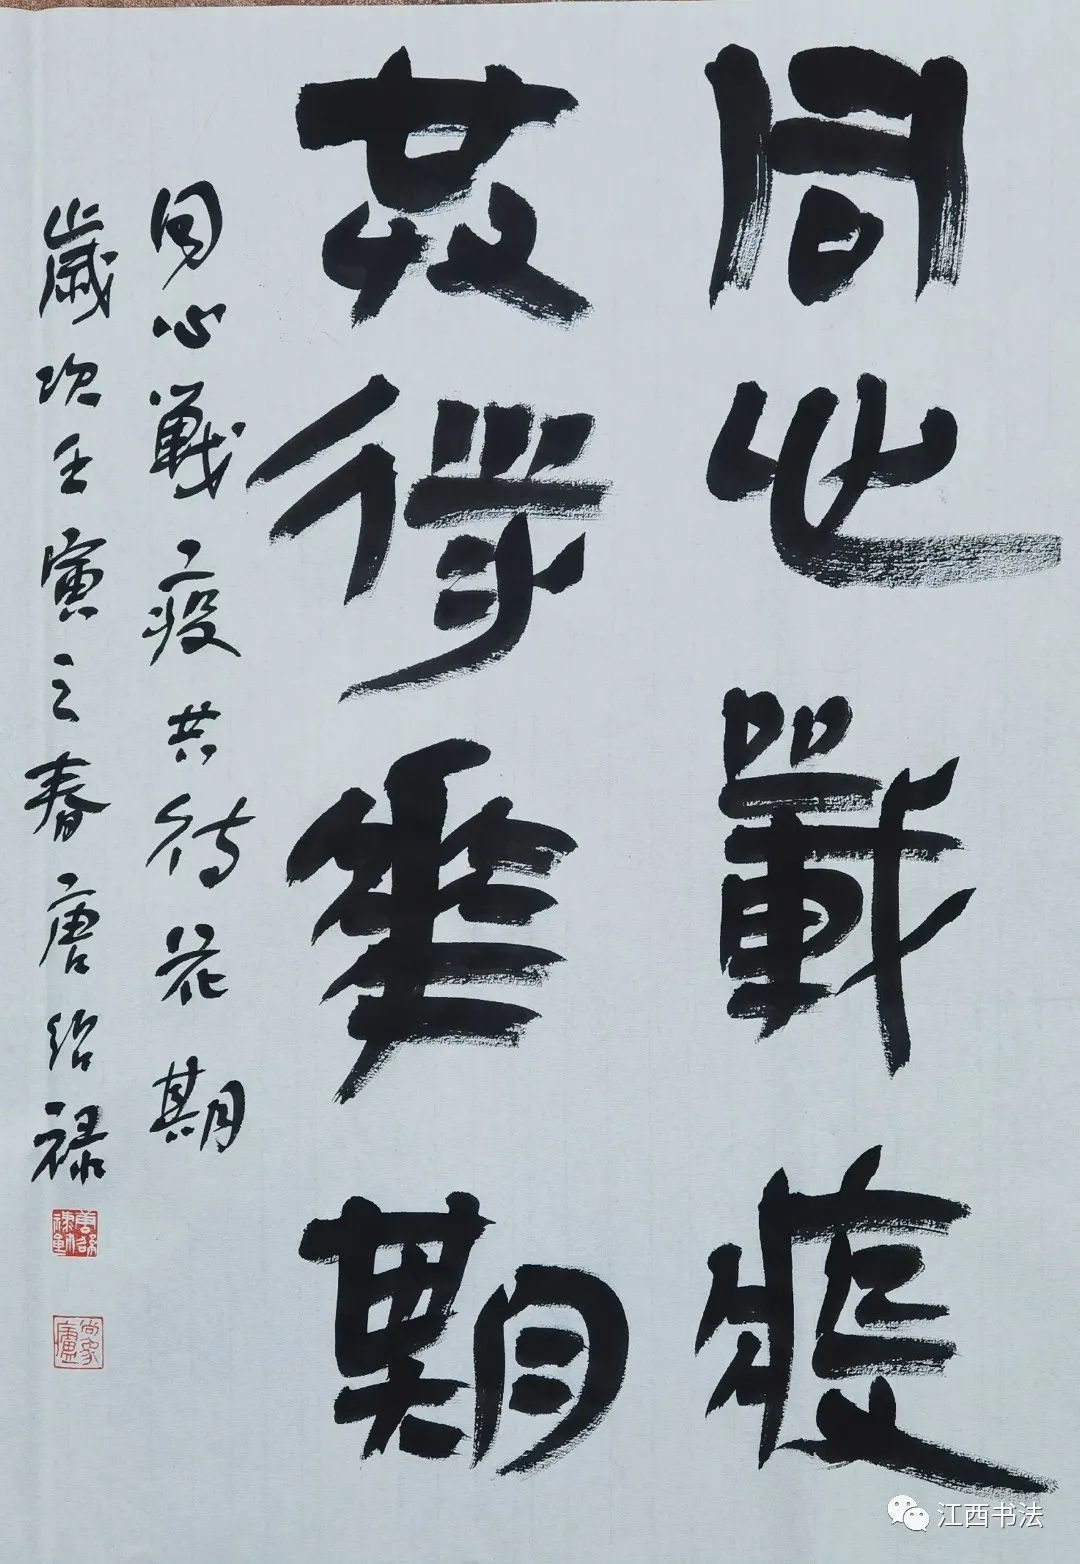 同心戰疫
共待華期
同心戰疫共待花期
歲次壬寅之春唐紹祿
尚象廬
江西书法